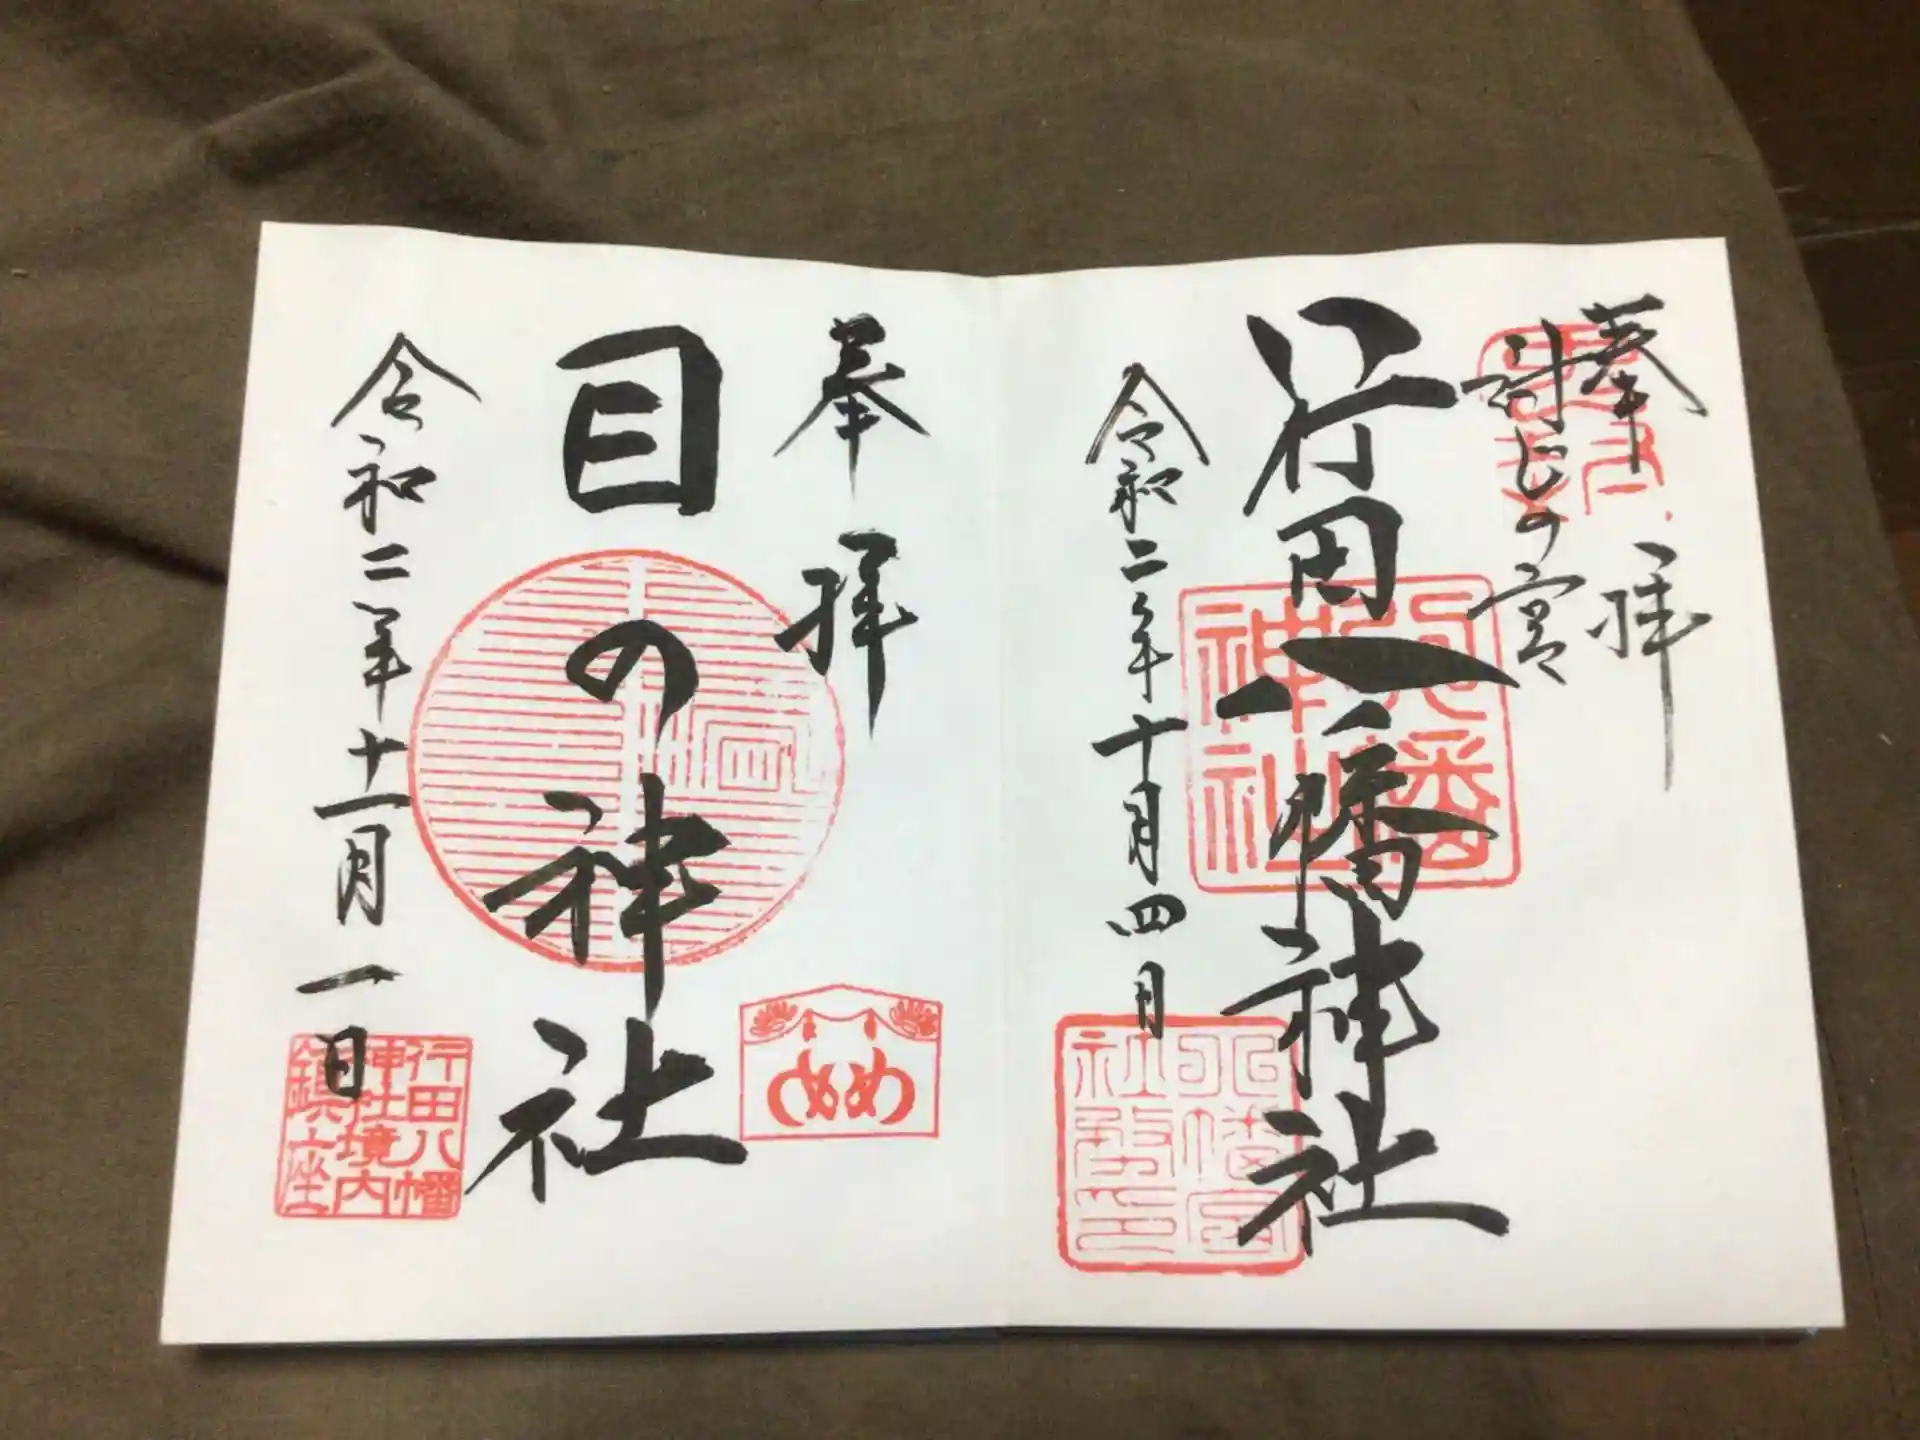 奉拝
封じの宮
行田八幡神社
令和二年十月四日
八幡神社
奉拝
目の神社
令和二年十一月一日
めめ
行田八幡
神社境内
鎮座